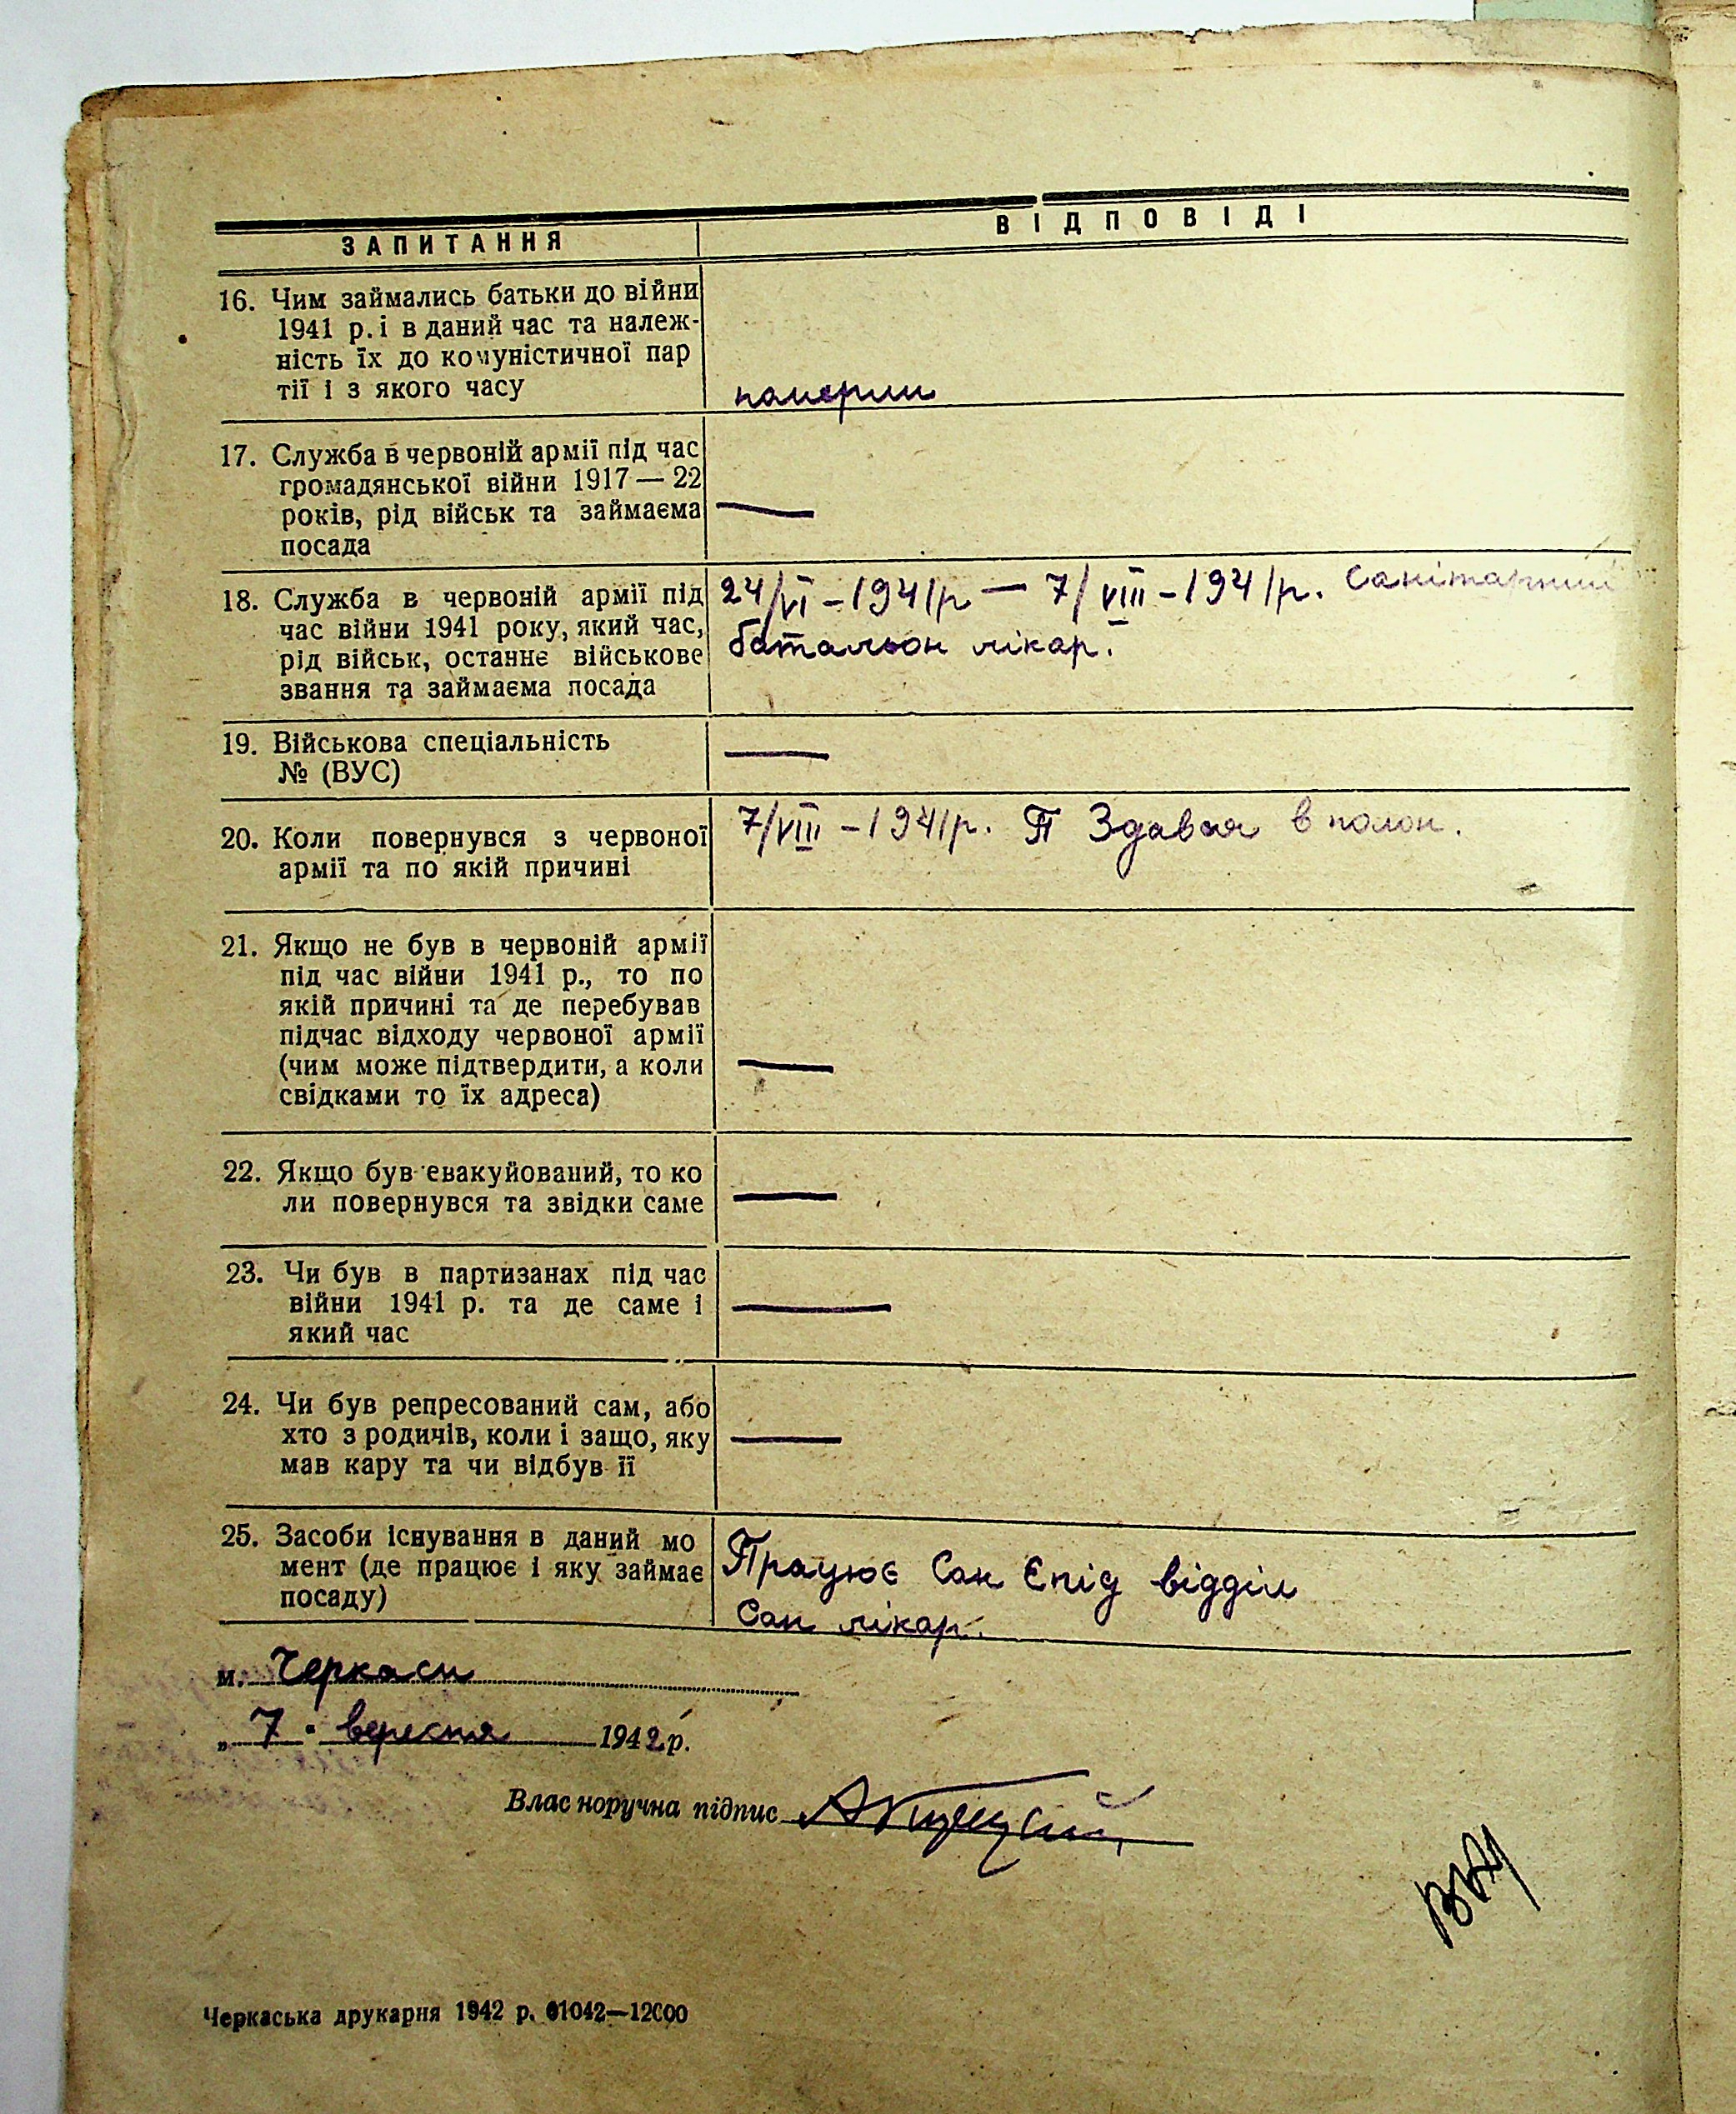 ЗАПИТАННЯ
ВІДПОВІДІ
16. Чим займались батьки до війни
1941 р. і в даний час та належ-
ність їх до комуністичної пар
тії і з якого часу
померли
17. Служба в червоній армії під час
громадянської війни 1917 — 22
років, рід військ та займаєма
посада
—
18. Служба в червоній армії під
час війни 1941 року, який час,
рід військ, останнє військове
звання та займаєма посада
24/VI – 1941р — 7/VIII – 1941р. Санітарний
батальон лікар.
19. Військова спеціальність
№ (ВУС)
—
20. Коли повернувся з червоної
армії та по якій причині
7/VIII – 1941р. П Здався в полон.
21. Якщо не був в червоній армії
під час війни 1941 р., то по
якій причині та де перебував
підчас відходу червоної армії
(чим може підтвердити, а коли
свідками то їх адреса)
—
22. Якщо був евакуйований, то ко
ли повернувся та звідки саме
—
23. Чи був в партизанах під час
війни 1941 р. та де саме і
який час
—
24. Чи був репресований сам, або
хто з родичів, коли і защо, яку
мав кару та чи відбув її
—
25. Засоби існування в даний мо
мент (де працює і яку займає
посаду)
Працює Сан Єпід відділ
Сан лікар.
м. Черкаси
„ 7 " вересня 1942 р.
Власноручна підпис
Черкаська друкарня 1942 р. 01042—12000